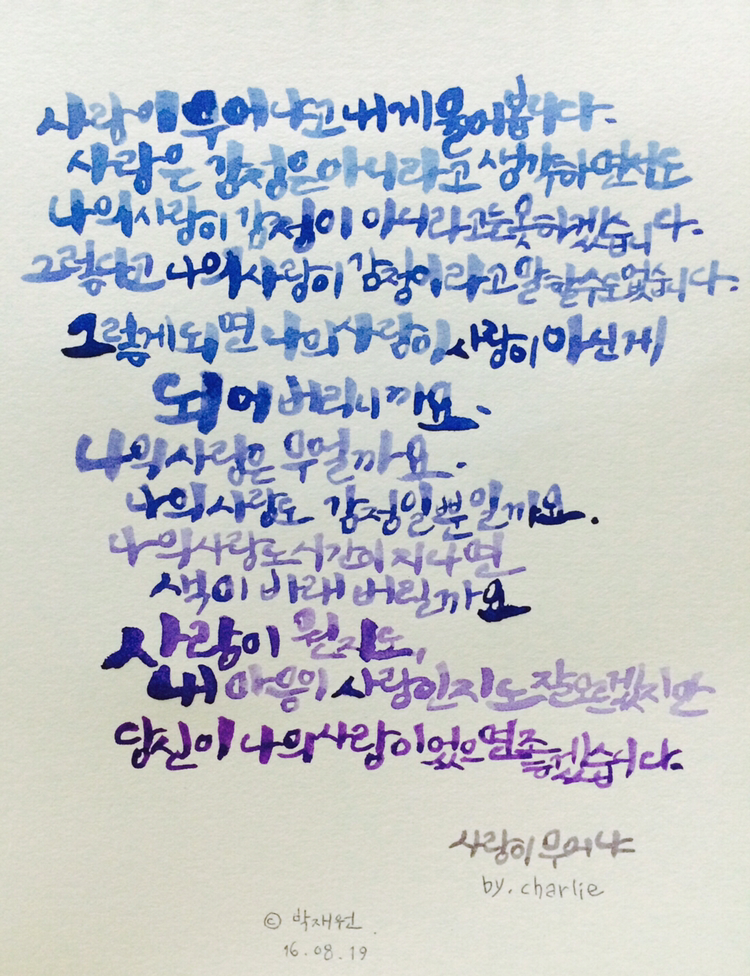 사랑이 무어냐고 내게 물어봅니다.
사랑은 감정은 아니라고 생각하면서도
나의 사랑이 감정이 아니라고는 못하겠습니다.
그렇다고 나의 사랑이 감정이라고 말할수도 없습니다.
그렇게 되면 나의 사랑이, 사랑이 아닌게
되어 버리니까요.
나의 사랑은 무얼까요.
나의 사랑도 감정일뿐일까요.
나의 사랑도 시간이 지나면
색이 바래 버릴까요
사랑이 뭔지도,
내 마음이 사랑인지도 잘모르겠지만
당신이 나의 사랑이었으면 좋겠습니다.
사랑이 무어냐
by. charlie
© 박재원.
16.08.19